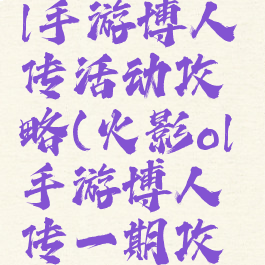 l手游博人
传活动攻
略(火影ol
手游博人
传一期攻